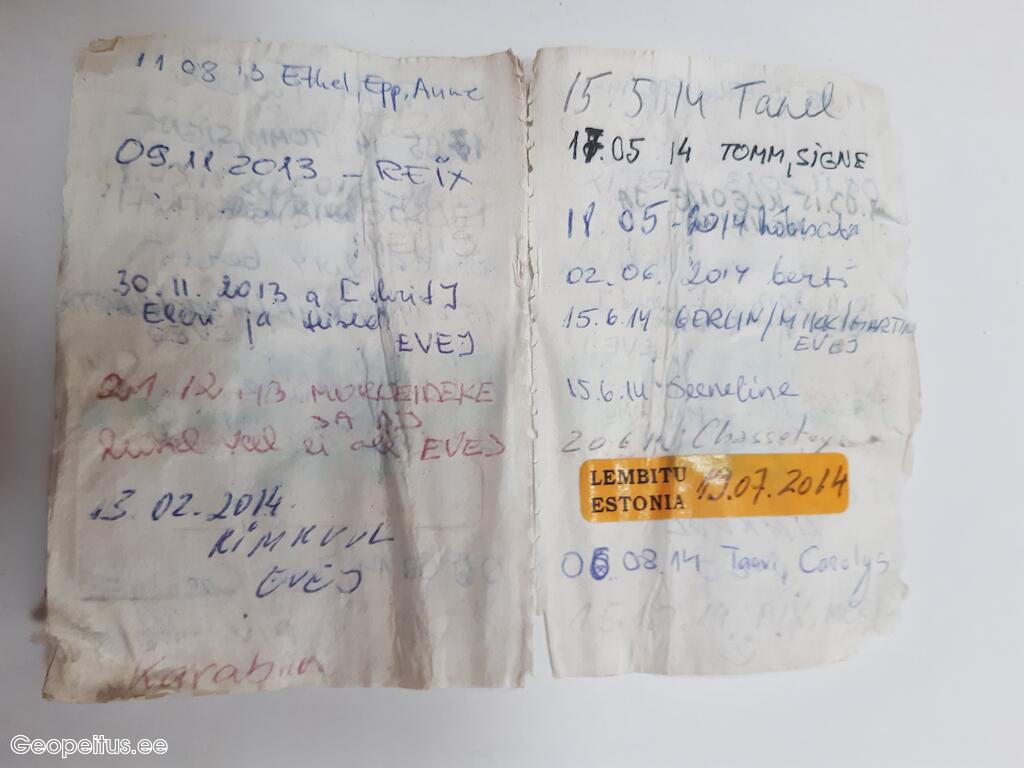 11 08 13 Ethel, Epp, Anne
09.11.2013 - REIX
30.11.2013 a [chrif]
Eleri ja
EVEJ
21.12.13
JA
ei ole EVEJ
13.02.2014
RIMKVVL
EVEJ
Karabiin
15.5.14 Tanel
17.05 14 TOMM, SIGNE
18.05-2014
02.06.2014 berti
15.6.14 GERLIN/MIKK/MARTIN
EVEJ
15.6.14 Seeneline
20 6 14
LEMBITU
ESTONIA
19.07.2014
06.08.14 Taavi, Carolys
Geopeitus.ee